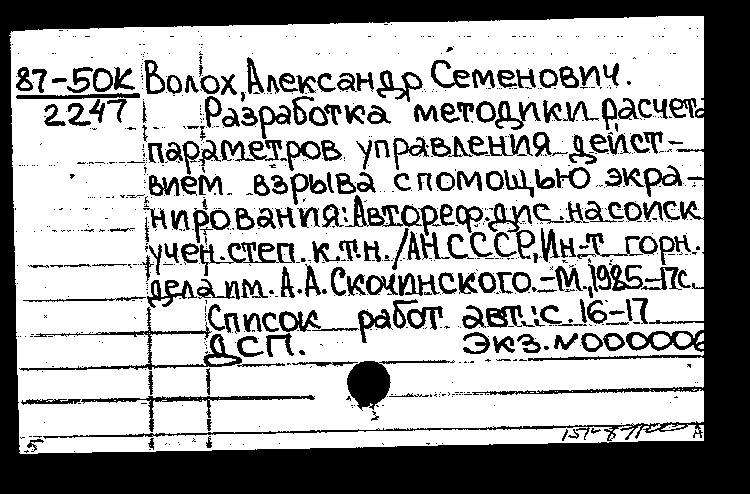 87-50К Волох, Александр Семенович.
2247 Разработка методики расчета
параметров управления дейст-
вием взрыва с помощью экра-
нирования: Автореф. дис. на соиск
учен. степ. к.т.н. /АН СССР, Ин-т горн.
дела им. А.А. Скочинского. -М., 1985.-17с.
Список работ авт.: с. 16-17.
ДСП. Экз. N000006
5